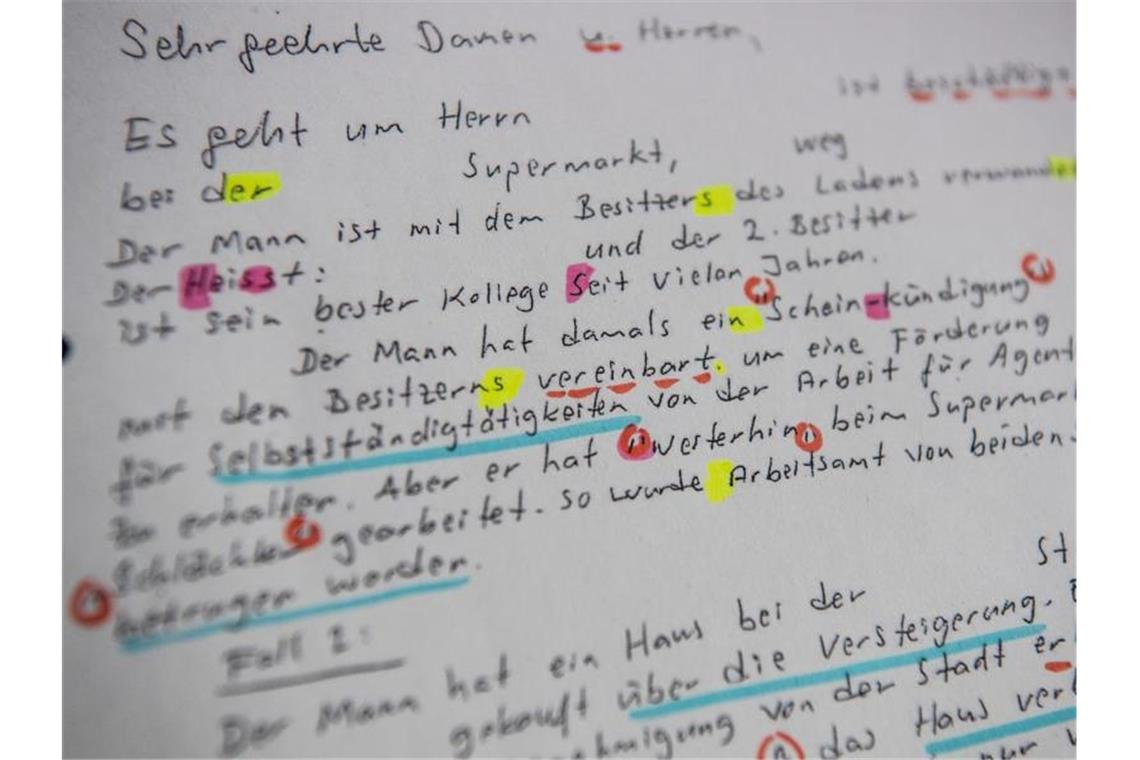 Sehr geehrte Damen u. Herren,
Es geht um Herrn ist
bei der Supermarkt, weg
Der Mann ist mit dem Besitzers des Ladens verwandt
Der Heisst: und der 2. Besitzer
ist sein bester Kollege Seit vielen Jahren.
Der Mann hat damals ein "Schein-kündigung"
mit den Besitzerns vereinbart. um eine Förderung
für Selbstständigtätigkeiten von der Arbeit für Agent
zu erhalten. Aber er hat "weiterhin" beim Supermar
gearbeitet. So wurde Arbeitsamt von beiden.
betrogen worden.
Fall 2: St
Der Mann hat ein Haus bei der
gekauft über die Versteigerung.
von der Stadt er
das Haus ver
nur